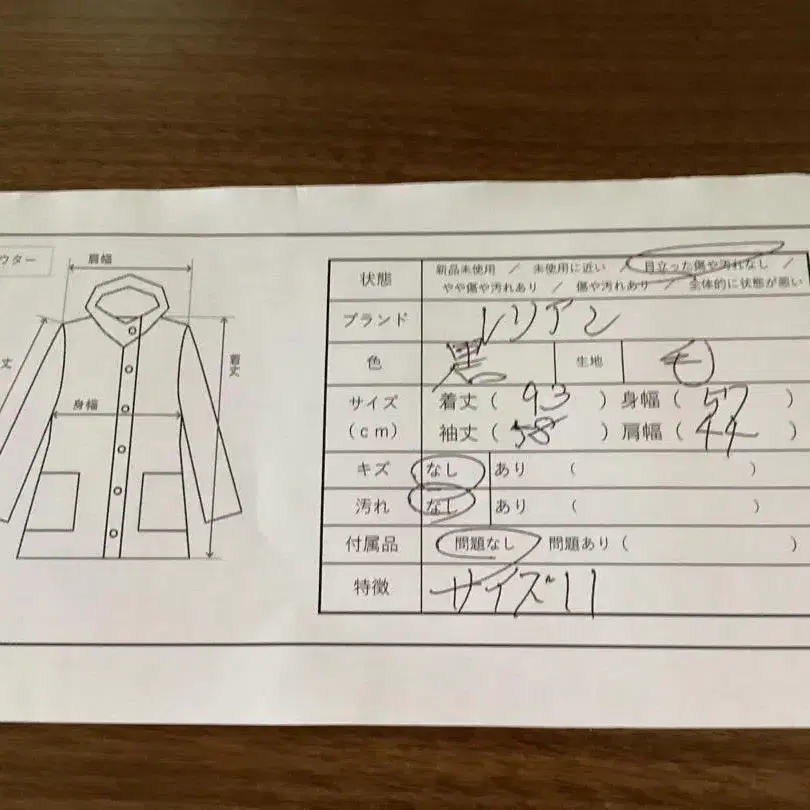 ウター
肩幅
丈
身幅
着丈
状態 新品未使用 / 未使用に近い / 目立った傷や汚れなし /
やや傷や汚れあり / 傷や汚れあり / 全体的に状態が悪い
ブランド レリアン
色 黒 生地 毛
サイズ 着丈 ( 93 ) 身幅 ( 57 )
(cm) 袖丈 ( 58 ) 肩幅 ( 44 )
キズ なし あり ( )
汚れ なし あり ( )
付属品 問題なし 問題あり ( )
特徴 サイズ11